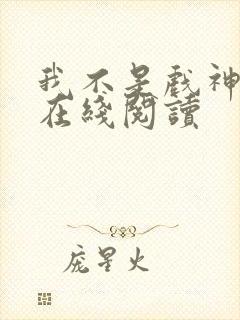 我不是戏神
在綫閱讀
庞星火